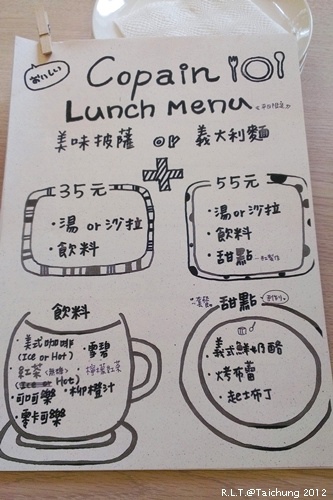 おいしい
Copain
Lunch Menu
美味披薩 or 義大利麵
35元
・湯 or 沙拉
・飲料
55元
・湯 or 沙拉
・飲料
・甜點
飲料
・美式咖啡
(Ice or Hot)
・紅茶
Hot)
・可可樂
・零卡可樂
・雪碧
・檸檬紅茶
・柳橙汁
甜點
・義式鮮奶酪
・烤布蕾
・起士布丁
R.L.T.@Taichung 2012